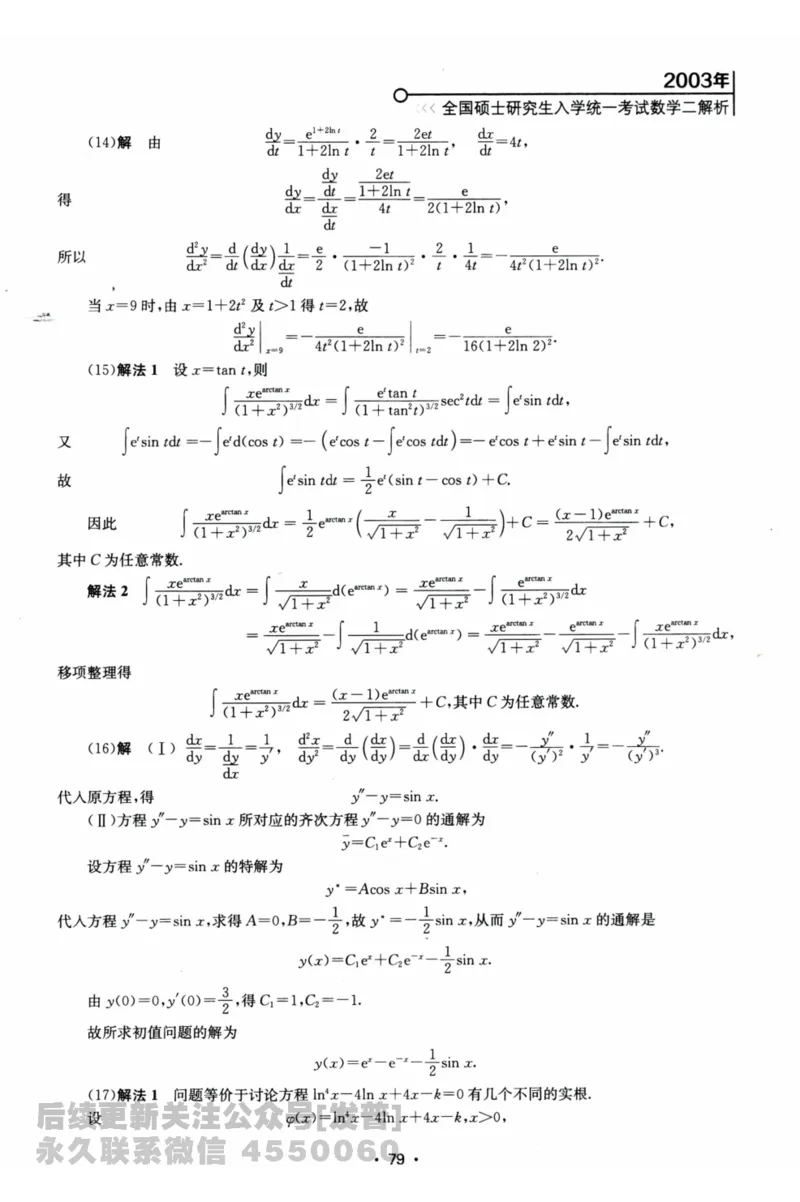 2003年
<<< 全国硕士研究生入学统一考试数学二解析
(14)解 由 dy/dt = e^(1+2ln t)/(1+2ln t) · 2/t = 2et/(1+2ln t), dx/dt = 4t,
得 dy/dx = (dy/dt)/(dx/dt) = (2et/(1+2ln t))/(4t) = e/(2(1+2ln t)),
所以 d²y/dx² = d/dt(dy/dx) 1/(dx/dt) = e/2 · (-1)/(1+2ln t)² · 2/t · 1/(4t) = - e/(4t²(1+2ln t)²).
当 x=9 时,由 x=1+2t² 及 t>1 得 t=2,故
d²y/dx²|_(x=9) = - e/(4t²(1+2ln t)²)|_(t=2) = - e/(16(1+2ln 2)²).
(15)解法 1 设 x=tan t,则
∫ xe^(arctan x)/(1+x²)^(3/2) dx = ∫ e^t tan t/(1+tan²t)^(3/2) sec²tdt = ∫e^t sin tdt,
又 ∫e^t sin tdt =-∫e^t d(cos t) =-(e^t cos t-∫e^t cos tdt)=-e^t cos t+e^t sin t-∫e^t sin tdt,
故 ∫e^t sin tdt = 1/2 e^t(sin t-cos t)+C.
因此 ∫ xe^(arctan x)/(1+x²)^(3/2) dx = 1/2 e^(arctan x)(x/√(1+x²) - 1/√(1+x²))+C = (x-1)e^(arctan x)/(2√(1+x²)) +C,
其中 C 为任意常数.
解法 2 ∫ xe^(arctan x)/(1+x²)^(3/2) dx = ∫ x/√(1+x²) d(e^(arctan x)) = xe^(arctan x)/√(1+x²) - ∫ e^(arctan x)/(1+x²)^(3/2) dx
= xe^(arctan x)/√(1+x²) - ∫ 1/√(1+x²) d(e^(arctan x)) = xe^(arctan x)/√(1+x²) - e^(arctan x)/√(1+x²) - ∫ xe^(arctan x)/(1+x²)^(3/2) dx,
移项整理得
∫ xe^(arctan x)/(1+x²)^(3/2) dx = (x-1)e^(arctan x)/(2√(1+x²)) +C,其中 C 为任意常数.
(16)解 (Ⅰ) dx/dy = 1/(dy/dx) = 1/y′, d²x/dy² = d/dy(dx/dy) = d/dx(dx/dy) · dx/dy = - y″/(y′)² · 1/y′ = - y″/(y′)³.
代入原方程,得 y″-y=sin x.
(Ⅱ)方程 y″-y=sin x 所对应的齐次方程 y″-y=0 的通解为
ȳ=C₁e^x+C₂e^(-x).
设方程 y″-y=sin x 的特解为
y*=Acos x+Bsin x,
代入方程 y″-y=sin x,求得 A=0,B=-1/2,故 y*=-1/2 sin x,从而 y″-y=sin x 的通解是
y(x)=C₁e^x+C₂e^(-x)-1/2 sin x.
由 y(0)=0,y′(0)=3/2,得 C₁=1,C₂=-1.
故所求初值问题的解为
y(x)=e^x-e^(-x)-1/2 sin x.
(17)解法 1 问题等价于讨论方程 ln⁴x-4ln x+4x-k=0 有几个不同的实根.
设 φ(x)=ln⁴x-4ln x+4x-k,x>0,
后续更新关注公众号[发普]
永久联系微信 4550060
· 79 ·